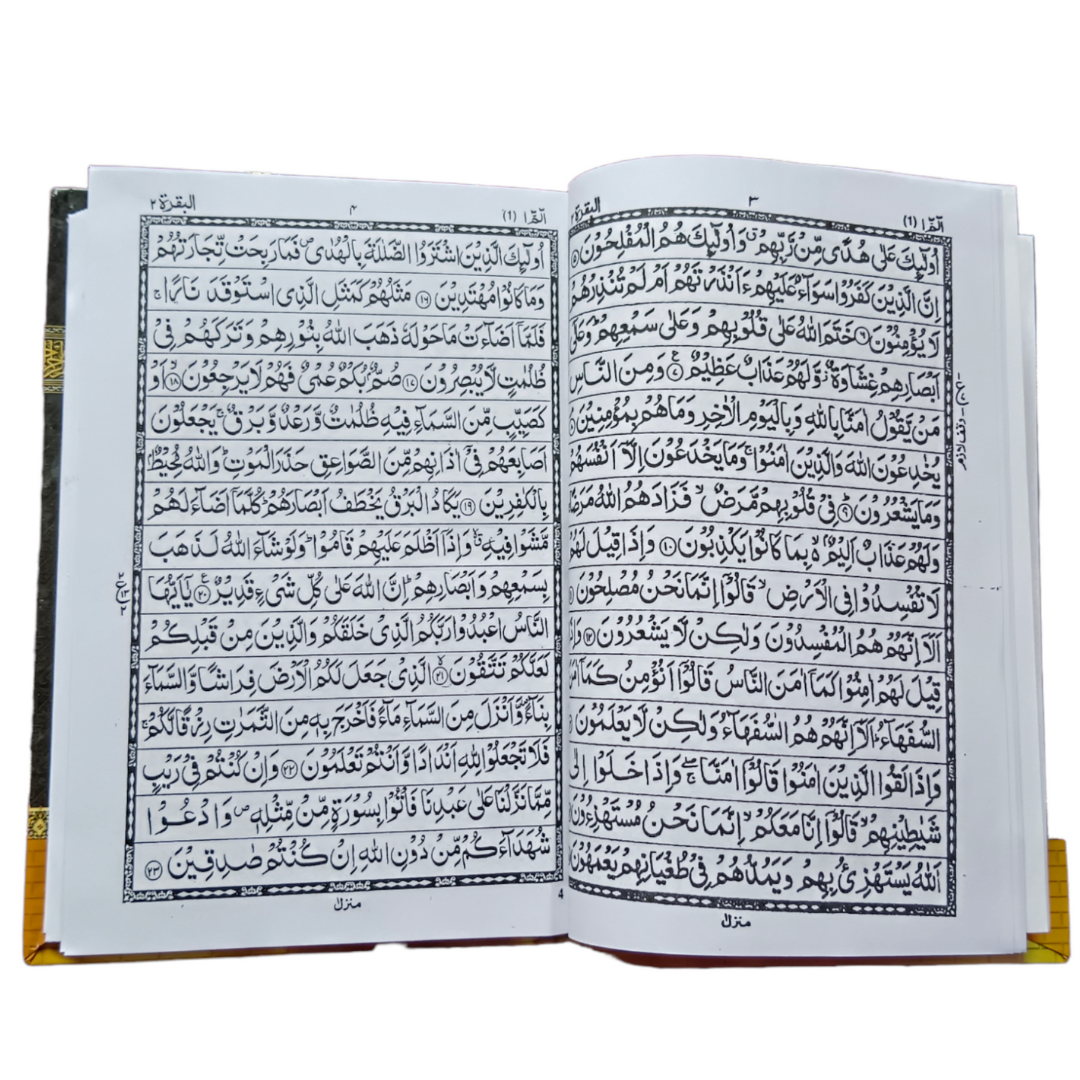 الٓمّٓ ١ (١)
٣
البقرة ٢
اُولٰٓئِكَ عَلٰى هُدًى مِّنْ رَّبِّهِمْ ۙ وَاُولٰٓئِكَ هُمُ الْمُفْلِحُوْنَ ۝۵
اِنَّ الَّذِيْنَ كَفَرُوْا سَوَآءٌ عَلَيْهِمْ ءَاَنْذَرْتَهُمْ اَمْ لَمْ تُنْذِرْهُمْ
لَا يُؤْمِنُوْنَ ۝۶ خَتَمَ اللّٰهُ عَلٰى قُلُوْبِهِمْ وَعَلٰى سَمْعِهِمْ ؕ وَعَلٰٓى
اَبْصَارِهِمْ غِشَاوَةٌ ؗ وَّلَهُمْ عَذَابٌ عَظِيْمٌ ۝۷ۧ وَمِنَ النَّاسِ
مَنْ يَّقُوْلُ اٰمَنَّا بِاللّٰهِ وَبِالْيَوْمِ الْاٰخِرِ وَمَا هُمْ بِمُؤْمِنِيْنَ ۝۸
يُخٰدِعُوْنَ اللّٰهَ وَالَّذِيْنَ اٰمَنُوْا ۚ وَمَا يَخْدَعُوْنَ اِلَّاۤ اَنْفُسَهُمْ
وَمَا يَشْعُرُوْنَ ۝۹ؕ فِيْ قُلُوْبِهِمْ مَّرَضٌ ۙ فَزَادَهُمُ اللّٰهُ مَرَضًا
وَلَهُمْ عَذَابٌ اَلِيْمٌ ۙ۬ بِمَا كَانُوْا يَكْذِبُوْنَ ۝۱۰ وَاِذَا قِيْلَ لَهُمْ
لَا تُفْسِدُوْا فِي الْاَرْضِ ۙ قَالُوْۤا اِنَّمَا نَحْنُ مُصْلِحُوْنَ
اَلَاۤ اِنَّهُمْ هُمُ الْمُفْسِدُوْنَ وَلٰكِنْ لَّا يَشْعُرُوْنَ ۝۱۲ وَاِذَا
قِيْلَ لَهُمْ اٰمِنُوْا كَمَاۤ اٰمَنَ النَّاسُ قَالُوْۤا اَنُؤْمِنُ كَمَاۤ اٰمَنَ
السُّفَهَآءُ ؕ اَلَاۤ اِنَّهُمْ هُمُ السُّفَهَآءُ وَلٰكِنْ لَّا يَعْلَمُوْنَ
وَاِذَا لَقُوا الَّذِيْنَ اٰمَنُوْا قَالُوْۤا اٰمَنَّا ۖۚ وَاِذَا خَلَوْا اِلٰى
شَيٰطِيْنِهِمْ ۙ قَالُوْۤا اِنَّا مَعَكُمْ ۙ اِنَّمَا نَحْنُ مُسْتَهْزِءُوْنَ
اَللّٰهُ يَسْتَهْزِئُ بِهِمْ وَيَمُدُّهُمْ فِيْ طُغْيَانِهِمْ يَعْمَهُوْنَ
وقف لازم
منزل
الٓمّٓ ١ (١)
۴
البقرة ٢
اُولٰٓئِكَ الَّذِيْنَ اشْتَرَوُا الضَّلٰلَةَ بِالْهُدٰى ۪ فَمَا رَبِحَتْ تِّجَارَتُهُمْ
وَمَا كَانُوْا مُهْتَدِيْنَ ۝۱۶ مَثَلُهُمْ كَمَثَلِ الَّذِي اسْتَوْقَدَ نَارًا ۚ
فَلَمَّاۤ اَضَآءَتْ مَا حَوْلَهٗ ذَهَبَ اللّٰهُ بِنُوْرِهِمْ وَتَرَكَهُمْ فِيْ
ظُلُمٰتٍ لَّا يُبْصِرُوْنَ ۝۱۷ صُمٌّۢ بُكْمٌ عُمْيٌ فَهُمْ لَا يَرْجِعُوْنَ ۝۱۸ۙ اَوْ
كَصَيِّبٍ مِّنَ السَّمَآءِ فِيْهِ ظُلُمٰتٌ وَّرَعْدٌ وَّبَرْقٌ ۚ يَجْعَلُوْنَ
اَصَابِعَهُمْ فِيْۤ اٰذَانِهِمْ مِّنَ الصَّوَاعِقِ حَذَرَ الْمَوْتِ ؕ وَاللّٰهُ مُحِيْطٌۢ
بِالْكٰفِرِيْنَ ۝۱۹ يَكَادُ الْبَرْقُ يَخْطَفُ اَبْصَارَهُمْ ؕ كُلَّمَاۤ اَضَآءَ لَهُمْ
مَّشَوْا فِيْهِ ۙۗ وَاِذَاۤ اَظْلَمَ عَلَيْهِمْ قَامُوْا ؕ وَلَوْ شَآءَ اللّٰهُ لَذَهَبَ
بِسَمْعِهِمْ وَاَبْصَارِهِمْ ؕ اِنَّ اللّٰهَ عَلٰى كُلِّ شَيْءٍ قَدِيْرٌ ۝۲۰ۧ يٰۤاَيُّهَا
النَّاسُ اعْبُدُوْا رَبَّكُمُ الَّذِيْ خَلَقَكُمْ وَالَّذِيْنَ مِنْ قَبْلِكُمْ
لَعَلَّكُمْ تَتَّقُوْنَ ۝۲۱ۙ الَّذِيْ جَعَلَ لَكُمُ الْاَرْضَ فِرَاشًا وَّالسَّمَآءَ
بِنَآءً ۪ وَّاَنْزَلَ مِنَ السَّمَآءِ مَآءً فَاَخْرَجَ بِهٖ مِنَ الثَّمَرٰتِ رِزْقًا لَّكُمْ ۚ
فَلَا تَجْعَلُوْا لِلّٰهِ اَنْدَادًا وَّاَنْتُمْ تَعْلَمُوْنَ ۝۲۲ وَاِنْ كُنْتُمْ فِيْ رَيْبٍ
مِّمَّا نَزَّلْنَا عَلٰى عَبْدِنَا فَاْتُوْا بِسُوْرَةٍ مِّنْ مِّثْلِهٖ ۪ وَادْعُوْا
شُهَدَآءَكُمْ مِّنْ دُوْنِ اللّٰهِ اِنْ كُنْتُمْ صٰدِقِيْنَ ۝۲۳
ع ۱۳ ۲ ۲
منزل